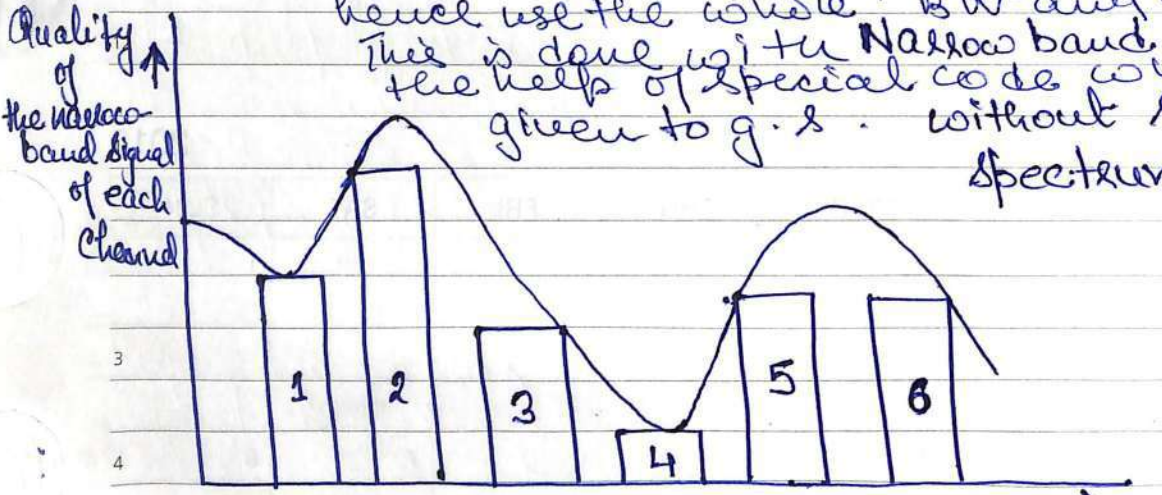 hence use the whole BW any
This is done with Narrow band
the help of special code
given to g.s. without
spectrum
Quality
of
the narrow-
band signal
of each
Channel
1 2 3 4 5 6
3
4